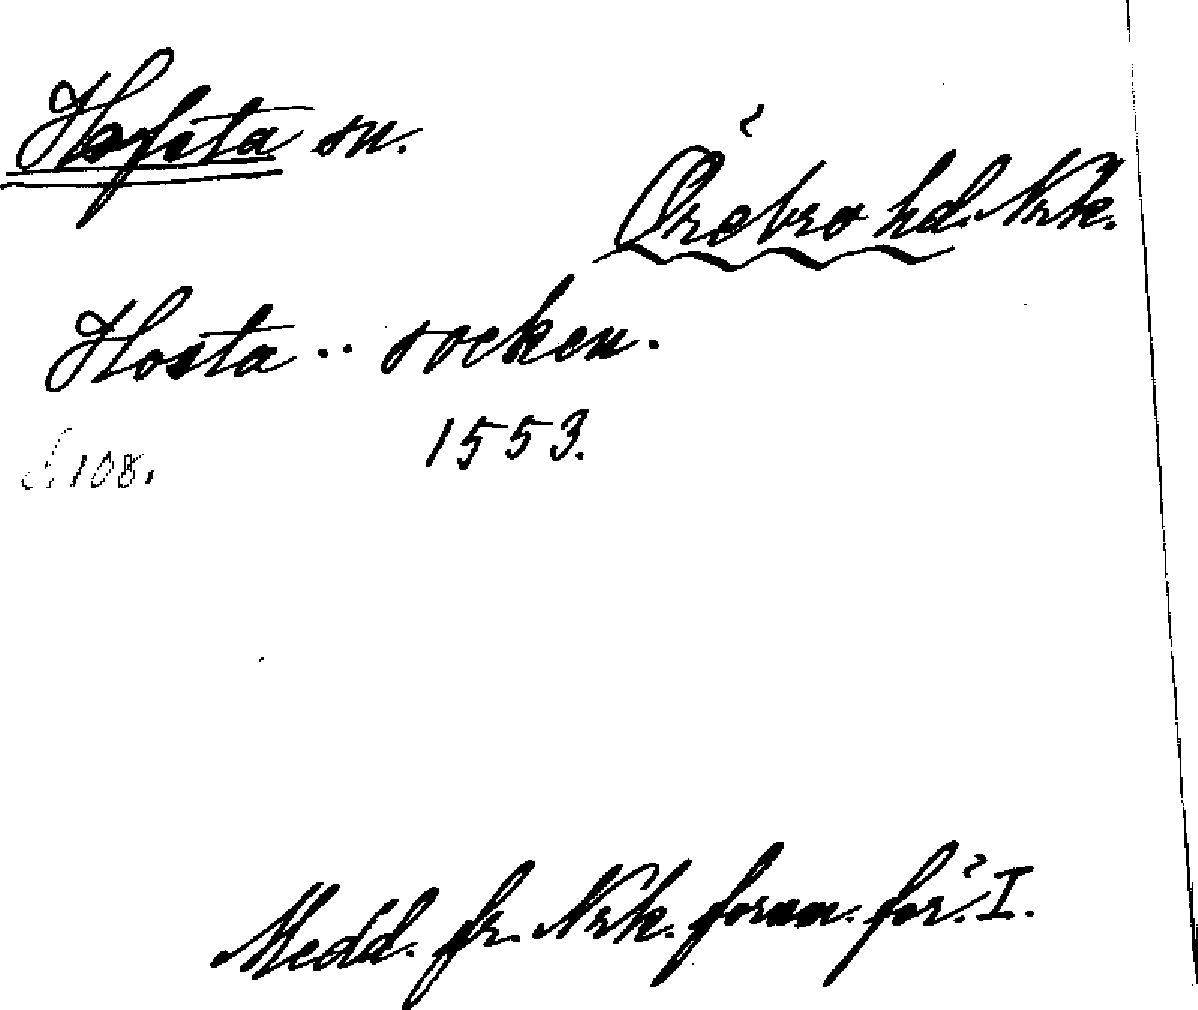 Hofsta sn.
Örebro hd. Nrk.
Hosta .. socken.
1553.
S. 108.
Medd. fr. Nrk. fornm. för. I.